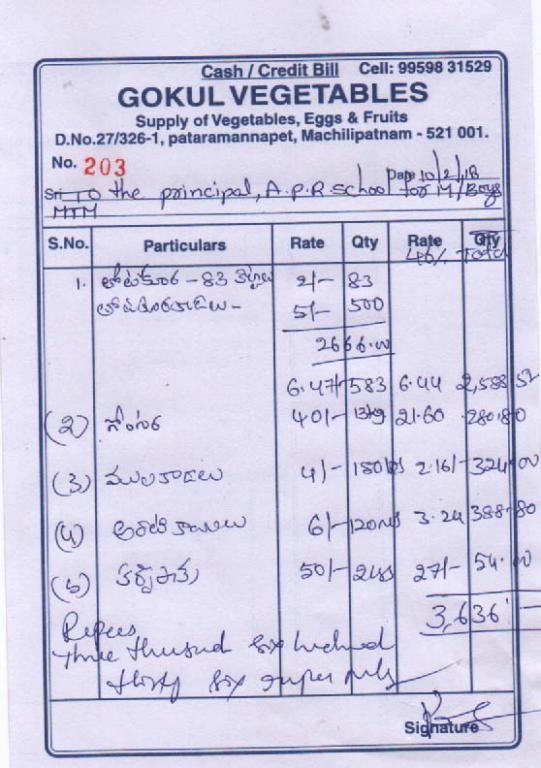 Cash / Credit Bill Cell: 99598 31529
GOKUL VEGETABLES
Supply of Vegetables, Eggs & Fruits
D.No.27/326-1, pataramannapet, Machilipatnam - 521 001.
No. 203 Date 10/2/18
Sri TO the principal, A.P.R school for M/Boys
MTM
S.No. Particulars Rate Qty Rate Qty
46% Total
1. తోటకూర - 83 2/- 83
5/- 500
2666.00
6.47/- 583 6.44 2,588.52
(2) గోంగూర 40/- 13kg 21.60 280.80
(3) ములకాడలు 4/- 150 2.16/- 324.00
(4) అరటికాయలు 6/- 120 3.24 388.80
(5) 50/- 2 27/- 54.00
3,636
Rupees
three thusand six hudred
thirty six
Signature